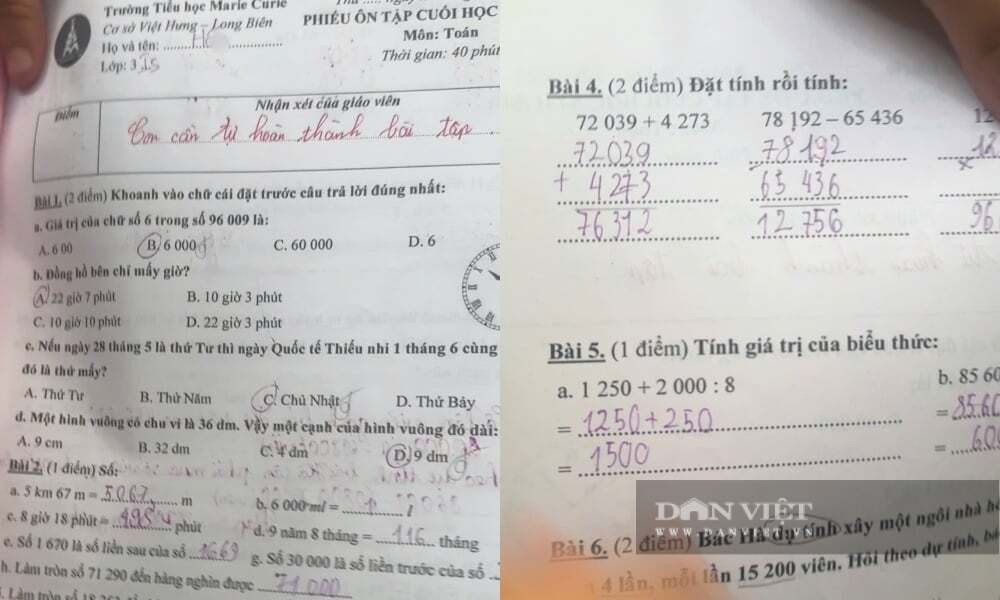 Trường Tiểu học Marie Curie
Cơ sở Việt Hưng – Long Biên
Họ và tên:
Lớp: 3
PHIẾU ÔN TẬP CUỐI HỌC
Môn: Toán
Thời gian: 40 phút
Điểm
Nhận xét của giáo viên
Con cần tự hoàn thành bài tập.
Bài 1. (2 điểm) Khoanh vào chữ cái đặt trước câu trả lời đúng nhất:
a. Giá trị của chữ số 6 trong số 96 009 là:
A. 6 00 B. 6 000 C. 60 000 D. 6
b. Đồng hồ bên chỉ mấy giờ?
A. 22 giờ 7 phút B. 10 giờ 3 phút
C. 10 giờ 10 phút D. 22 giờ 3 phút
c. Nếu ngày 28 tháng 5 là thứ Tư thì ngày Quốc tế Thiếu nhi 1 tháng 6 cùng
đó là thứ mấy?
A. Thứ Tư B. Thứ Năm C. Chủ Nhật D. Thứ Bảy
d. Một hình vuông có chu vi là 36 dm. Vậy một cạnh của hình vuông đó dài:
A. 9 cm B. 32 dm C. 4 dm D. 9 dm
Bài 2. (1 điểm) Số:
a. 5 km 67 m = 5067 m b. 6 000 ml = l
c. 8 giờ 18 phút = 498 phút d. 9 năm 8 tháng = 116 tháng
e. Số 1 670 là số liền sau của số 1669 g. Số 30 000 là số liền trước của số
h. Làm tròn số 71 290 đến hàng nghìn được 71 000
Làm tròn số
Bài 4. (2 điểm) Đặt tính rồi tính:
72 039 + 4 273 78 192 – 65 436 12
72039 78192 12
+ 4273 - 65 436 ×
76312 12 756 96
Bài 5. (1 điểm) Tính giá trị của biểu thức:
a. 1 250 + 2 000 : 8 b. 85 60
= 1250 + 250 = 8560
= 1500 = 600
DÂN VIỆT
WWW.DANVIET.VN
Bài 6. (2 điểm) Bác Hà dự tính xây một ngôi nhà
4 lần, mỗi lần 15 200 viên. Hỏi theo dự tính,